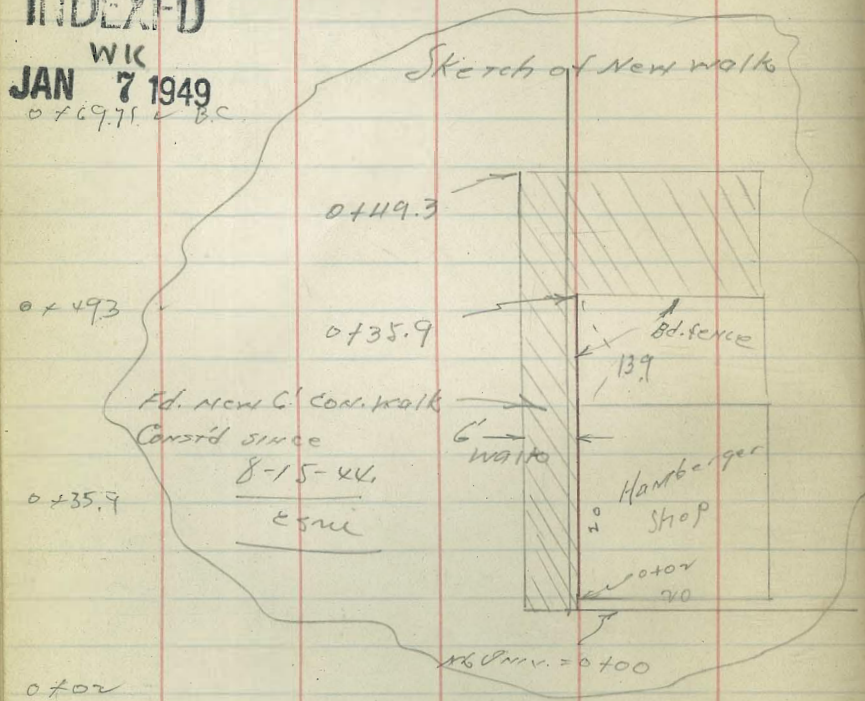 INDEXED
WK
JAN 7 1949
0+69.71 B.C.
Sketch of New walk
0+49.3
0+49.3
0+35.9
Bd. fence
13.9
Fd. new 6' con. walk
Const'd since
8-15-44.
6'
walk
Hamberger
Shop
20
0+35.9
0+02
20
= 0+00
0+02